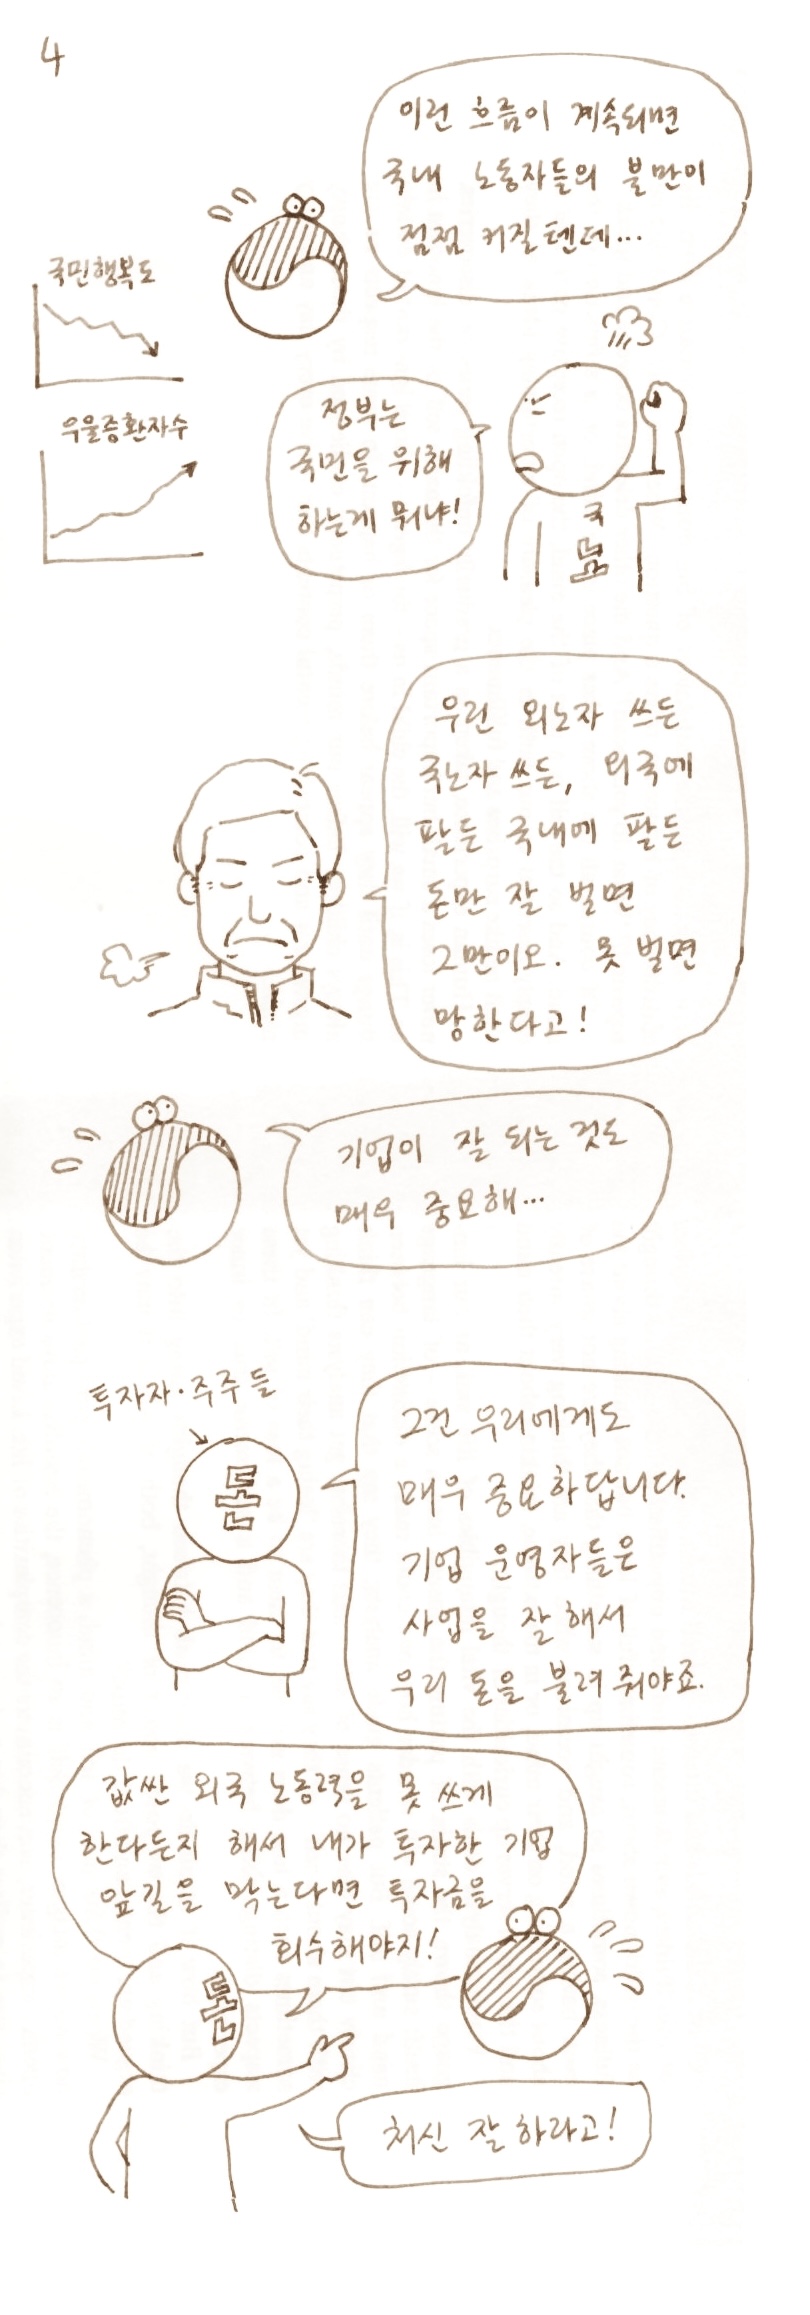 4
이런 흐름이 계속되면
국내 노동자들의 불만이
점점 커질텐데...
국민행복도
우울증환자수
정부는
국민을 위해
하는게 뭐냐!
국
노
우린 외노자 쓰든
국노자 쓰든, 외국에
팔든 국내에 팔든
돈만 잘 벌면
그만이오. 못 벌면
망한다고!
기업이 잘 되는 것도
매우 중요해...
투자자·주주들
돈
그건 우리에게도
매우 중요하답니다.
기업 운영자들은
사업을 잘해서
우리 돈을 불려줘야죠.
값싼 외국 노동력을 못 쓰게
한다든지 해서 내가 투자한 기업
앞길을 막는다면 투자금을
회수해야지!
돈
처신 잘하라고!